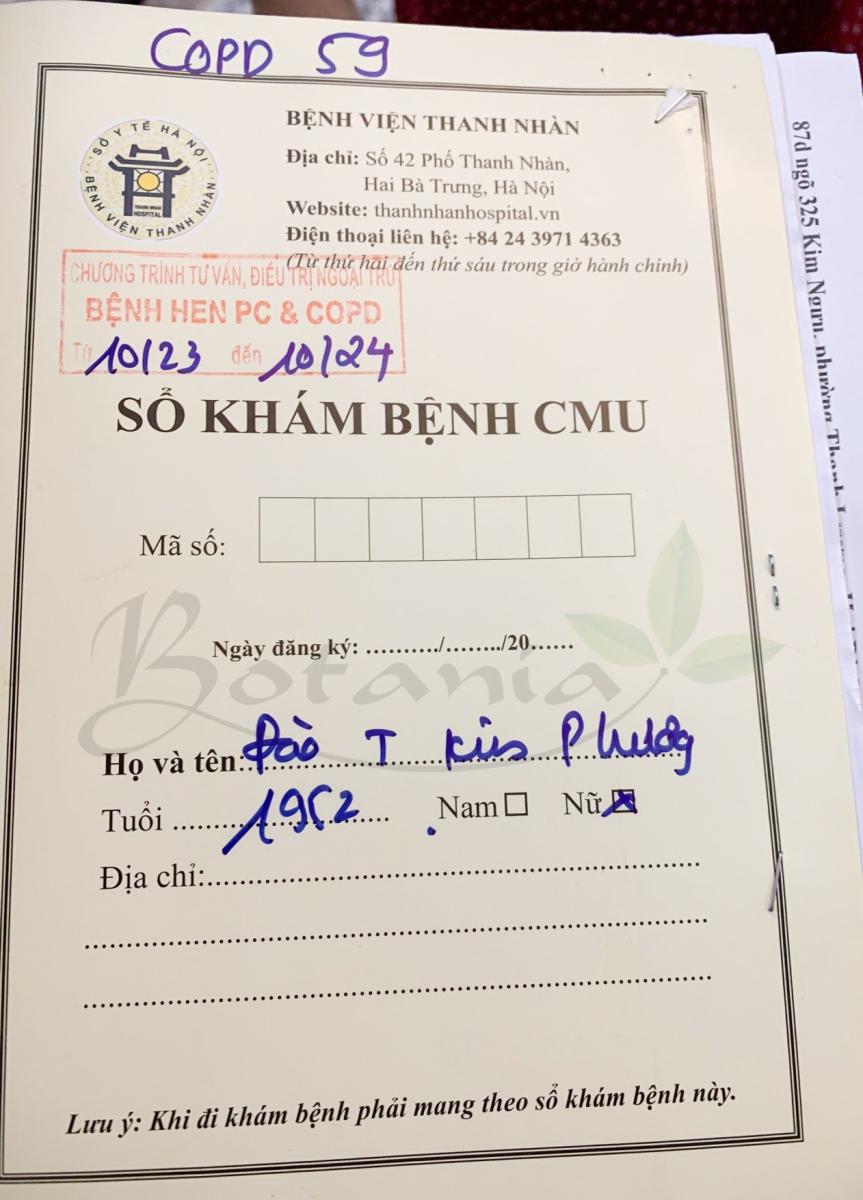 COPD 59
SỞ Y TẾ HÀ NỘI
BỆNH VIỆN THANH NHÀN
THANH NHAN
HOSPITAL
BỆNH VIỆN THANH NHÀN
Địa chỉ: Số 42 Phố Thanh Nhàn,
Hai Bà Trưng, Hà Nội
Website: thanhnhanhospital.vn
Điện thoại liên hệ: +84 24 3971 4363
(Từ thứ hai đến thứ sáu trong giờ hành chính)
CHƯƠNG TRÌNH TƯ VẤN, ĐIỀU TRỊ NGOẠI TRÚ
BỆNH HEN PC & COPD
Từ 10/23 đến 10/24
SỔ KHÁM BỆNH CMU
Mã số:
Ngày đăng ký: ........../......../20......
Botania
Họ và tên: Đào T Kim Phương
Tuổi 1952 Nam ☐ Nữ ☒
Địa chỉ:
Lưu ý: Khi đi khám bệnh phải mang theo sổ khám bệnh này.
87d ngõ 325 Kim Ngưu, phường Thanh